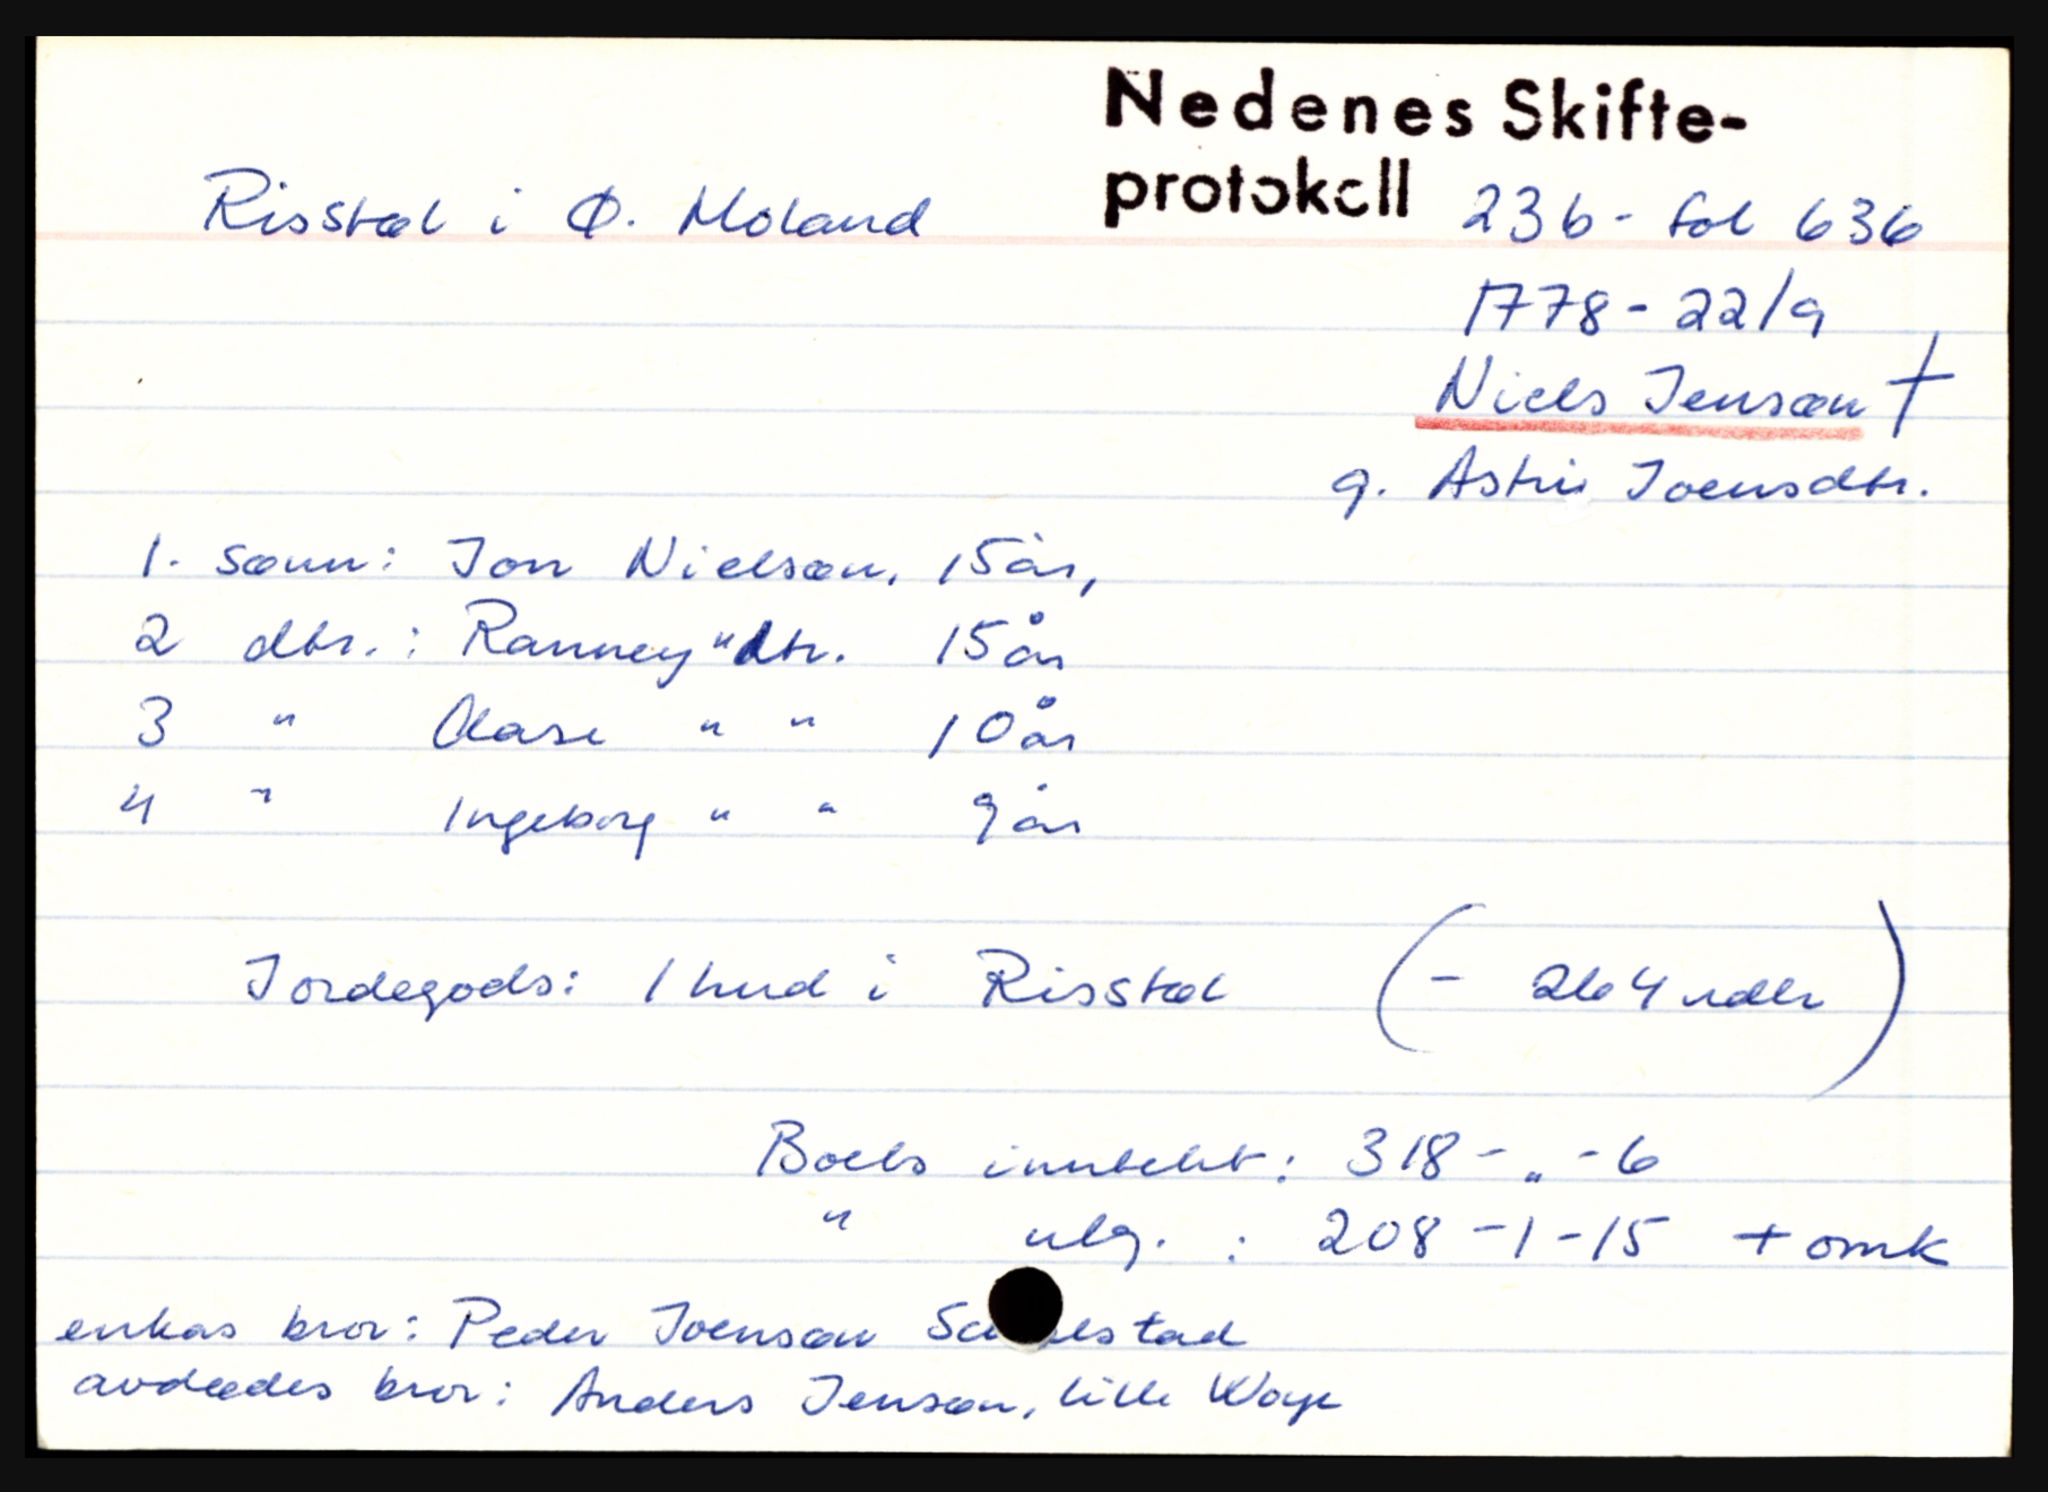 Nedenes Skifte-
protokoll
Risstøl i Ø. Moland 23b - fol 636
1778 - 22/9
Niels Jensøn †
g. Astri Joensdtr.
1. sønn: Jon Nielsøn, 15 år,
2 dtr.: Ranney " dtr. 15 år
3 " Aase " " 10 år
4 " Ingeborg " " 9 år
Jordegods: 1 hud i Risstøl (- 264 rdlr)
Boets inntekt: 318 - " - 6
" utg. : 208 - 1 - 15 + omk
enkas bror: Peder Joensøn
avdødes bror: Anders Jensøn, lille Woye